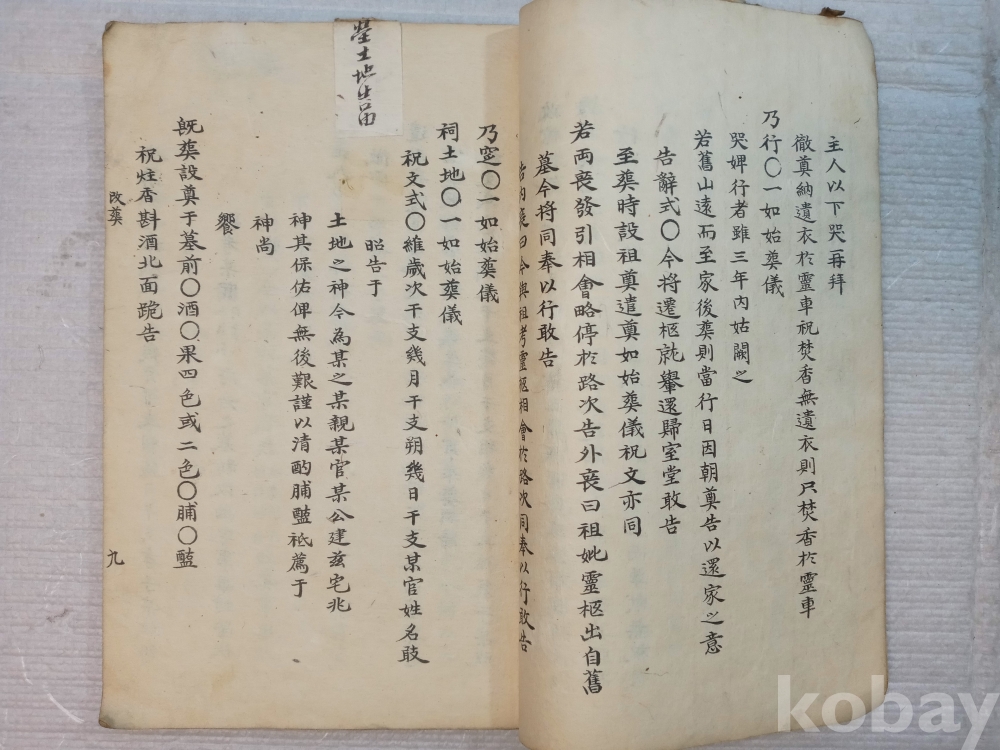 主人以下哭再拜
徹奠納遺衣於靈車祝焚香無遺衣則只焚香於靈車
乃行〇一如始葬儀
哭婢行者雖三年內姑闕之
若舊山遠而至家後葬則當行日因朝奠告以還家之意
告辭式〇今將遷柩就轝還歸室堂敢告
至葬時設祖奠遣奠如始葬儀祝文亦同
若兩喪發引相會略停於路次告外喪曰祖妣靈柩出自舊
墓今將同奉以行敢告
告內喪曰今與祖考靈柩相會於路次同奉以行敢告
乃窆〇一如始葬儀
祠土地〇一如始葬儀
祝文式〇維歲次干支幾月干支朔幾日干支某官姓名敢
昭告于
土地之神今為某之某親某官某公建玆宅兆
神其保佑俾無後艱謹以清酌脯醢祗薦于
神尚
饗
旣葬設奠于墓前〇酒〇果四色或二色〇脯〇醢
祝炷香斟酒北面跪告
改葬
九
土地
kobay